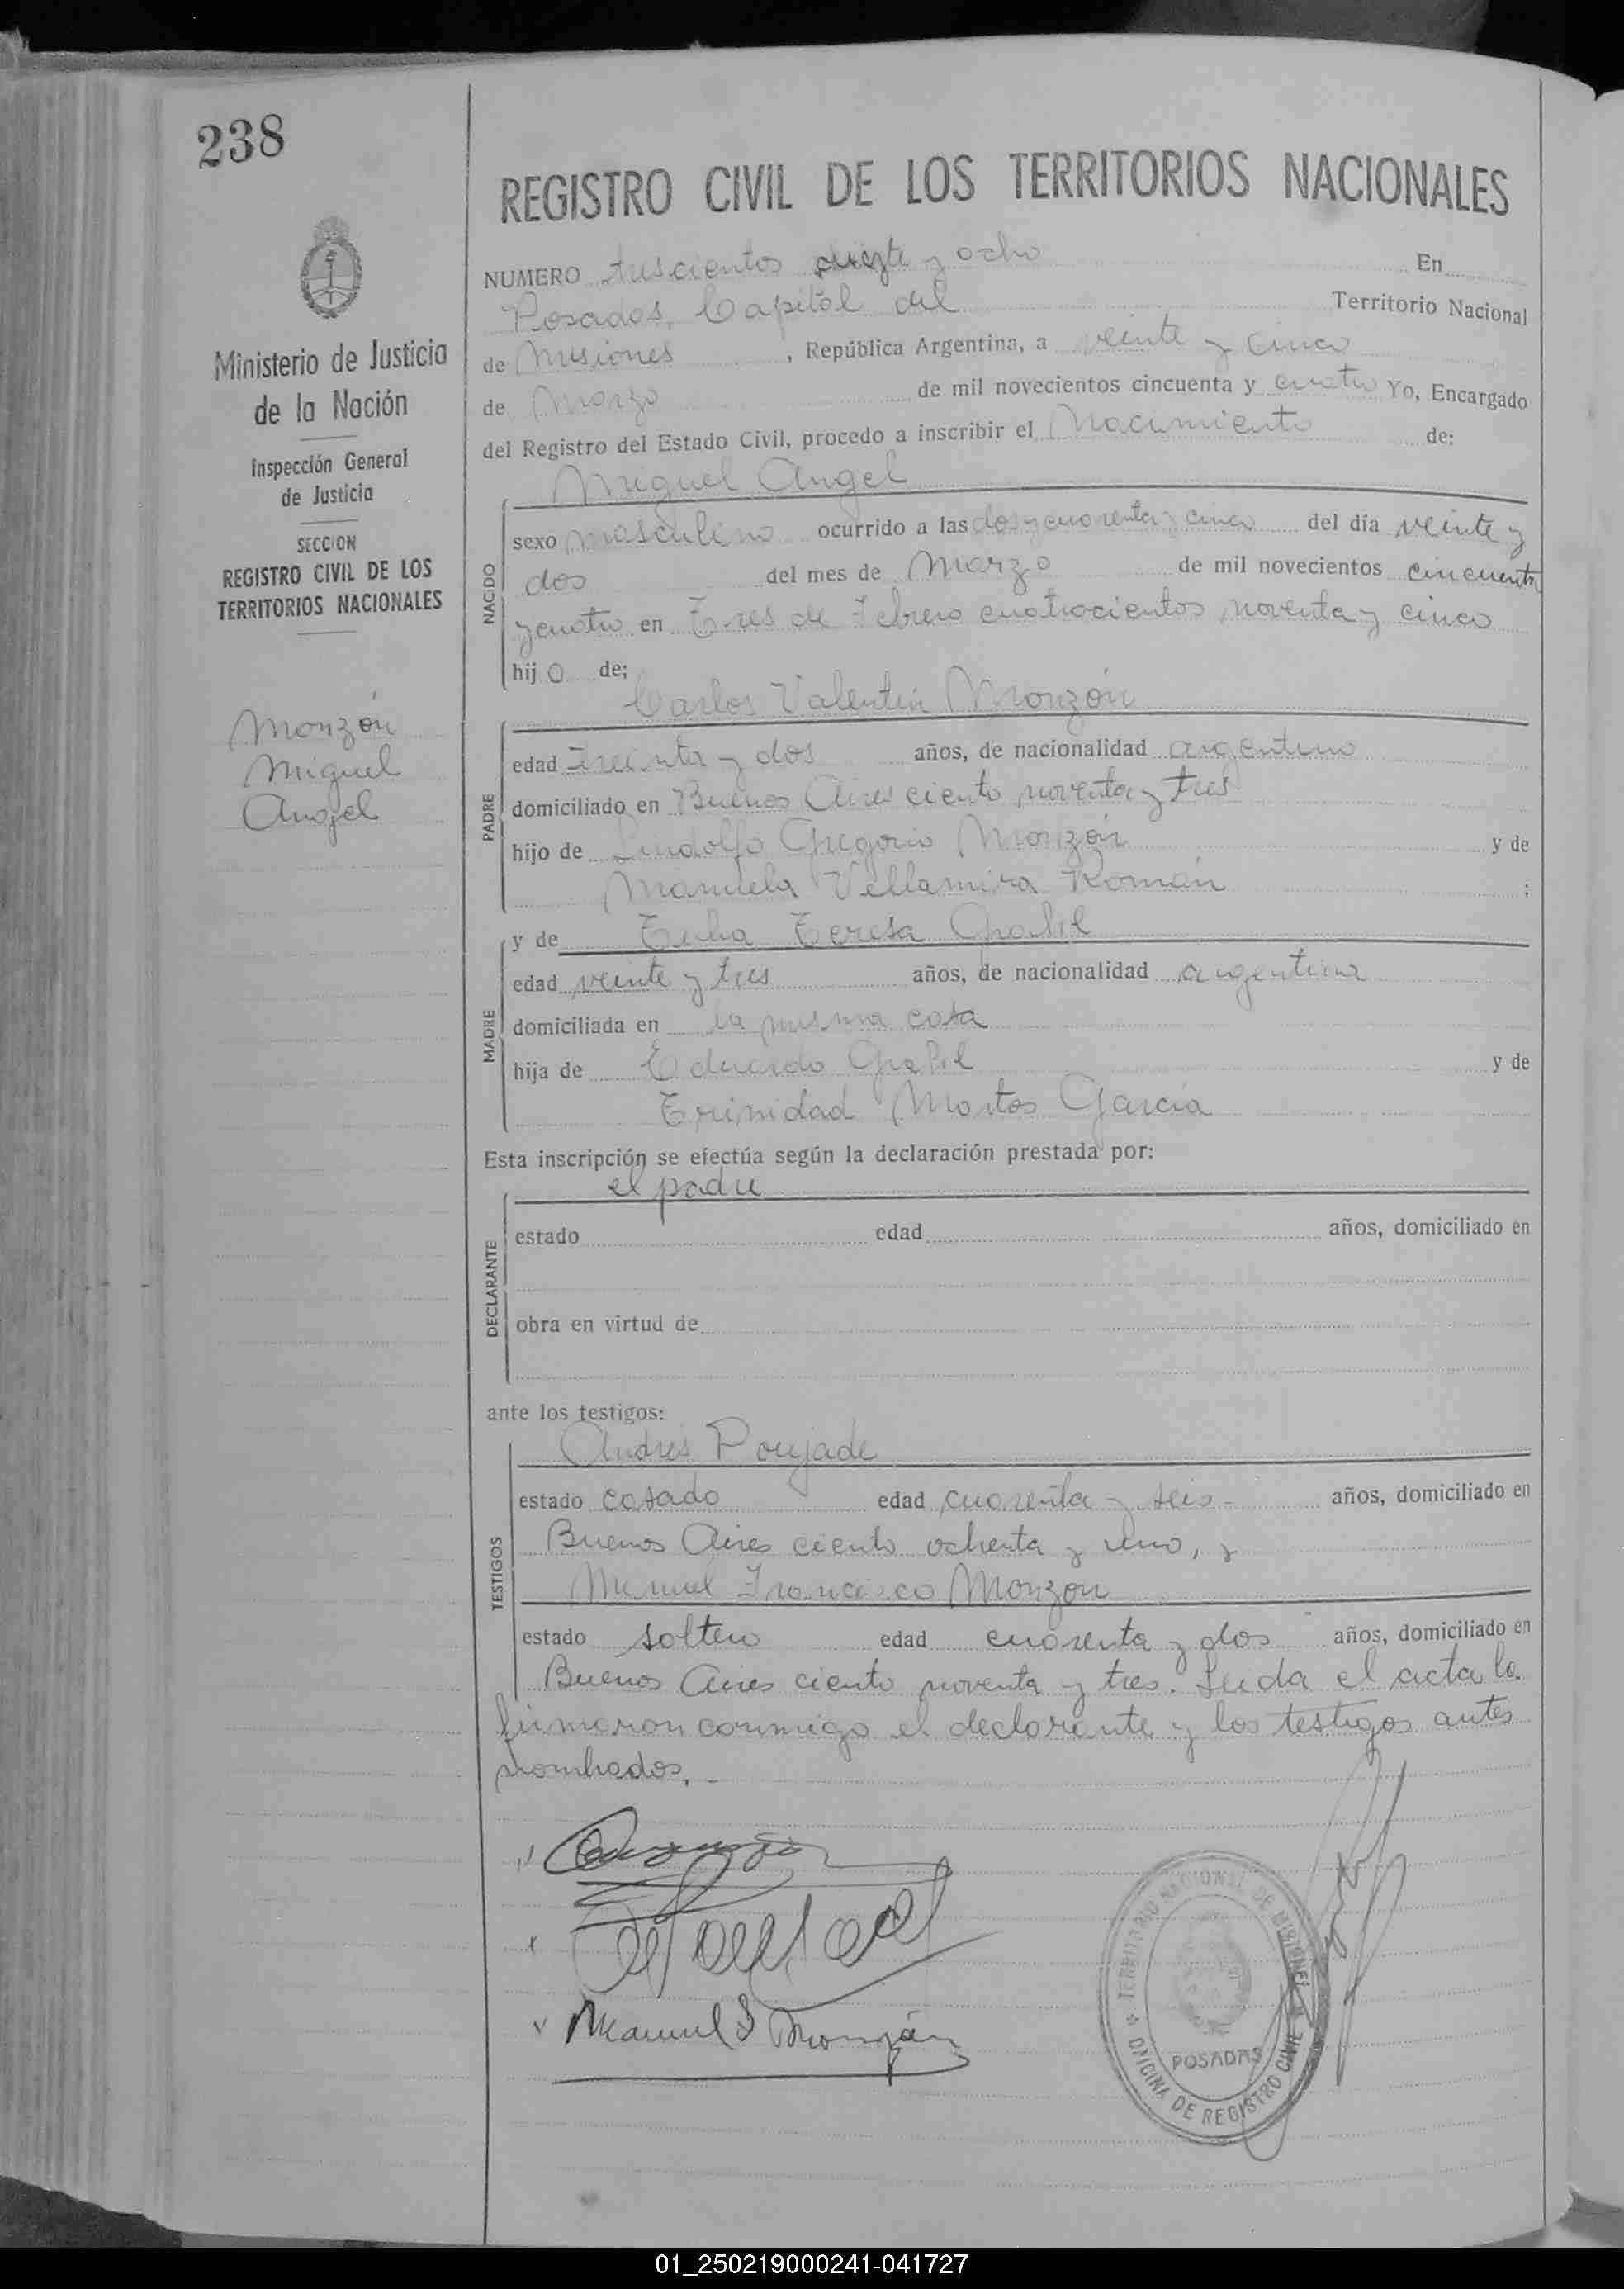 238
REGISTRO CIVIL DE LOS TERRITORIOS NACIONALES
NUMERO trescientos y ocho En
Posadas, Capital del Territorio Nacional
de Misiones, República Argentina, a veinte y cinco
de Marzo de mil novecientos cincuenta y cuatro Yo, Encargado
del Registro del Estado Civil, procedo a inscribir el Nacimiento de:
Ministerio de Justicia
de la Nación
Inspección General
de Justicia
SECCION
REGISTRO CIVIL DE LOS
TERRITORIOS NACIONALES
Monzón
Miguel
Angel
NACIDO
Miguel Angel
sexo masculino ocurrido a las dos y cuarenta y cinco del día veinte y
dos del mes de Marzo de mil novecientos cincuenta
y cuatro en Tres de Febrero cuatrocientos noventa y cinco
hijo de;
PADRE
Carlos Valentín Monzón
edad treinta y dos años, de nacionalidad argentino
domiciliado en Buenos Aires ciento noventa y tres
hijo de Lindolfo Gregorio Monzón y de
Manuela Villamira Román :
MADRE
y de Teresa
edad veinte y tres años, de nacionalidad argentina
domiciliada en la misma casa
hija de Eduardo y de
Trinidad Martos García
Esta inscripción se efectúa según la declaración prestada por:
DECLARANTE
el padre
estado edad años, domiciliado en
obra en virtud de
ante los testigos:
TESTIGOS
Andres Poujade
estado casado edad cuarenta y seis años, domiciliado en
Buenos Aires ciento ochenta y uno, y
Manuel Francisco Monzon
estado soltero edad cuarenta y dos años, domiciliado en
Buenos Aires ciento noventa y tres. Leida el acta la
firmaron conmigo el declarante y los testigos antes
nombrados.
Manuel F Monzón
TERRITORIO NACIONAL DE MISIONES
POSADAS
OFICINA DE REGISTRO CIVIL
01_250219000241-041727